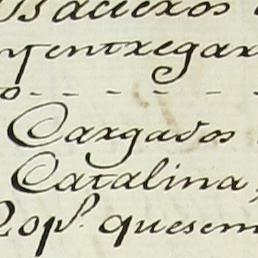 Bacieros
entregar
o - - - - -
Cargados
Catalina,
Rop.ˢ quesem